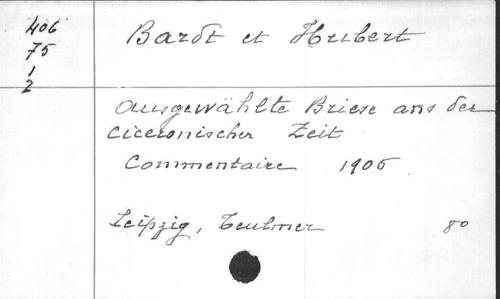 406
75
1
2
Bardt et Hubert
Ausgewählte Briefe aus der
ciceronischer Zeit
Commentaire 1905
Leipzig, Teubner 8o